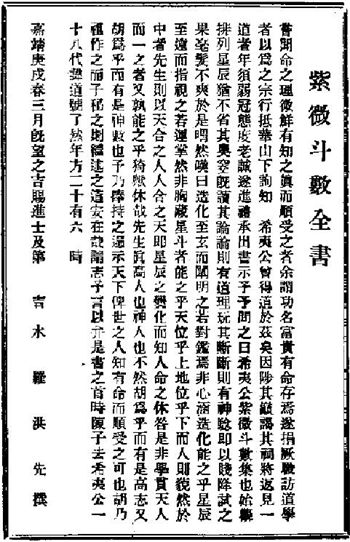 紫微斗數全書
嘗聞命之理微鮮有知之眞而順受之者余謂功名富貴有命存焉遂捐厥職訪道學
者以爲之宗行抵華山下詢知 希夷公曾得道於茲矣因陟其巔謁其祠將返見一
道者年須弱冠態度老誠遂進禮承出書示予予問之曰希夷公紫微斗數集也始觀
排列星辰猶不省其奧究既讀其論論則有道理玩其斷斷則有神驗卽以賤降試之
果毫髮不爽於是喟然嘆曰造化至玄而闡明之若對鑑焉非心涵造化能之乎星辰
至遠而指視之若運掌然非胸藏星斗者能之乎天位乎上地位乎下而人則藐然於
中者先生則以天合之人人合之天卽星辰之變化而知人命之休咎是非學貫天人
而一之者又孰能之乎猗歟休哉先生眞高人也神人也不然胡爲乎而有是高志又
胡爲乎而有是神數也予乃捧持之遑示天下俾世之人知有命而順受之可也胡乃
祖作之而子秘之則繼述之道安在哉隱志予言以弁是書之首時陳子去希夷公一
十八代諱道號了然年方二十有六 時
嘉靖庚戌春三月既望之吉賜進士及第 吉水羅洪先撰